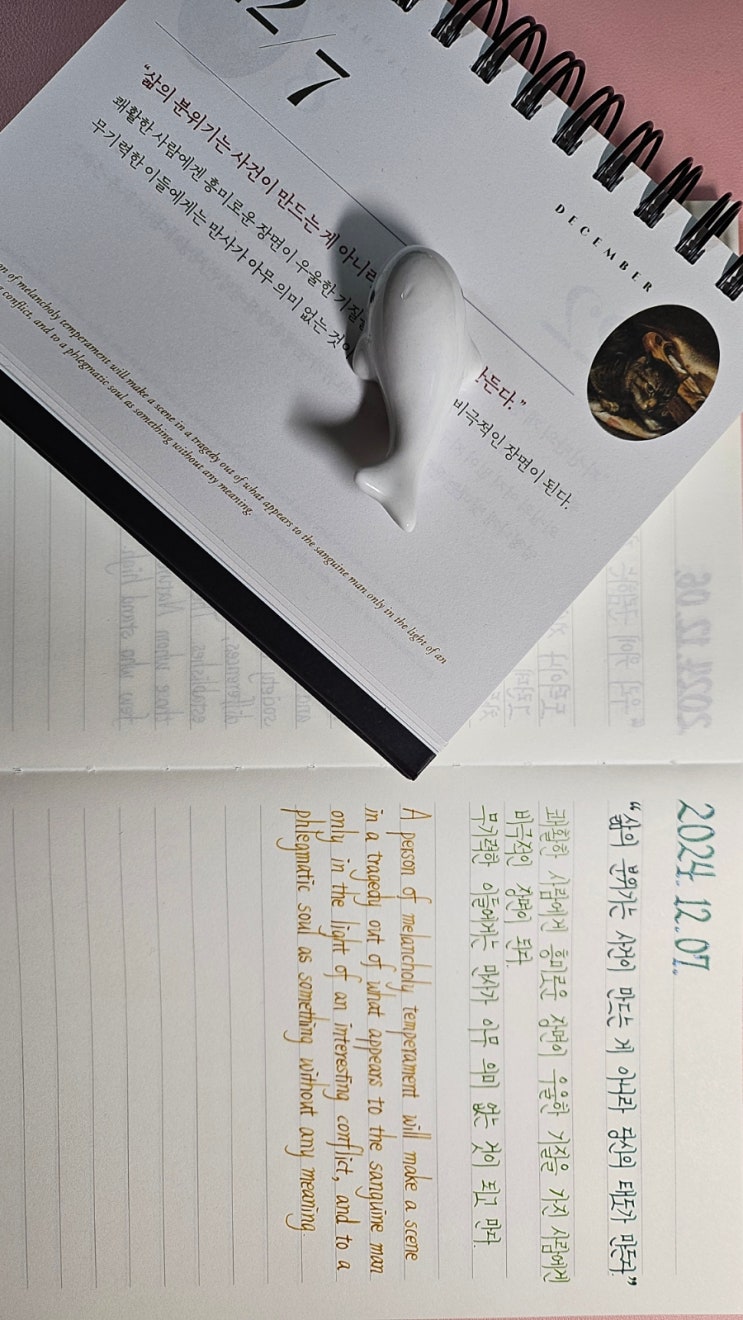 2/7
DECEMBER
“삶의 분위기는 사건이 만드는 게 아니라 든다.”
쾌활한 사람에겐 흥미로운 장면이 우울한 기질을 비극적인 장면이 된다.
무기력한 이들에게는 만사가 아무 의미 없는 것이
of melancholy temperament will make a scene in a tragedy out of what appears to the sanguine man only in the light of an
conflict, and to a phlegmatic soul as something without any meaning.
2024. 12. 07.
“삶의 분위기는 사건이 만드는 게 아니라 당신의 태도가 만든다.”
쾌활한 사람에겐 흥미로운 장면이 우울한 기질을 가진 사람에겐
비극적인 장면이 된다.
무기력한 이들에게는 만사가 아무 의미 없는 것이 되고 만다.
A person of melancholy temperament will make a scene
in a tragedy out of what appears to the sanguine man
only in the light of an interesting conflict, and to a
phlegmatic soul as something without any meaning.